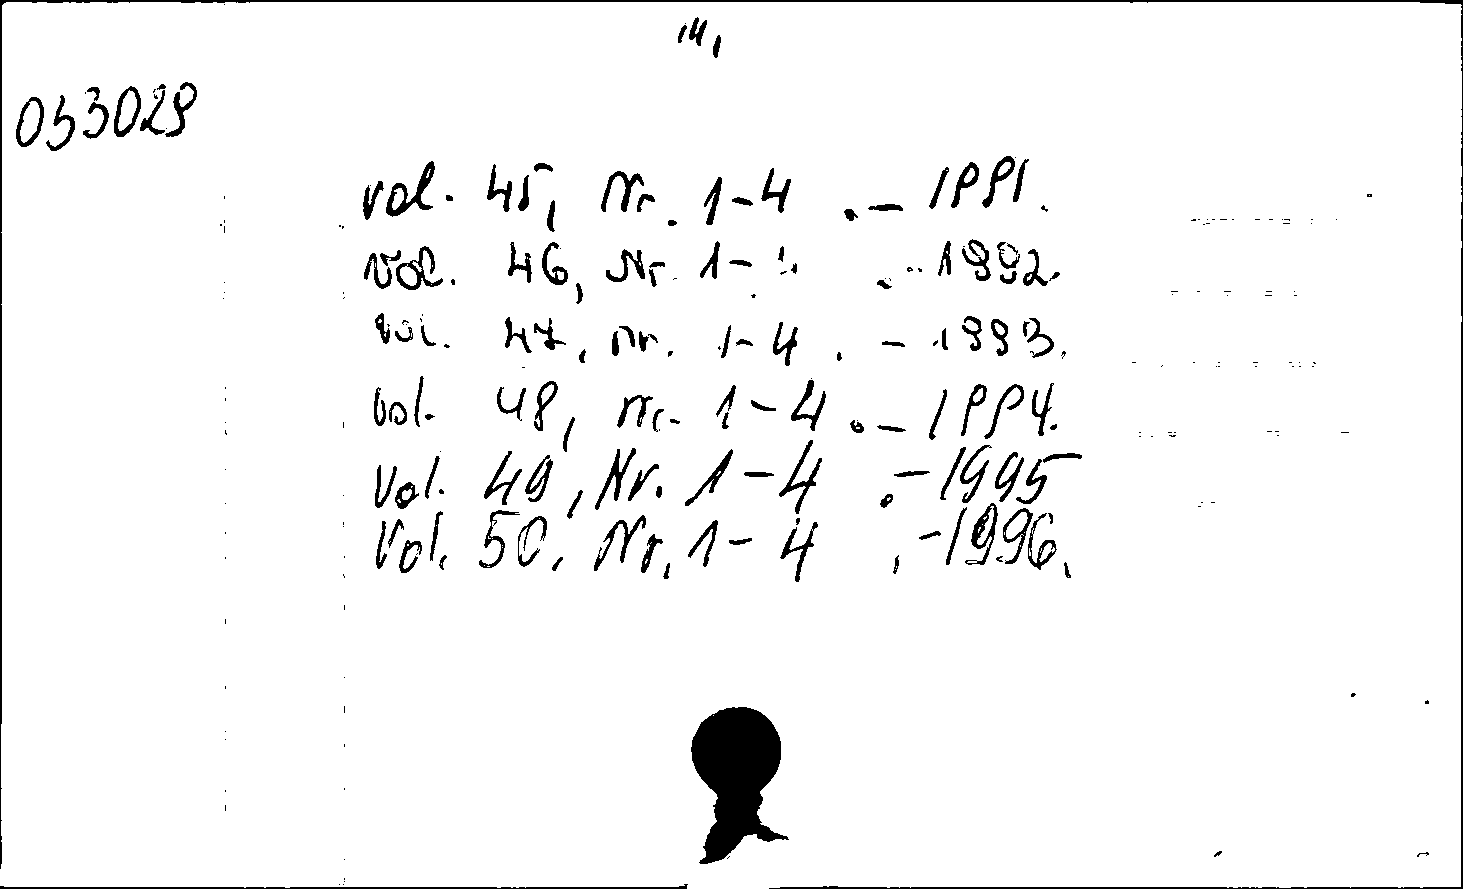 053029
vol. 45, Nr. 1-4 .- 1991.
vol. 46, Nr. 1- .- 1992.
vol. 47, nr. 1-4 . - 1993.
vol. 48, nr. 1-4 .- 1994.
Vol. 49, Nr. 1-4 .- 1995
Vol. 50, Nr. 1-4 .- 1996.